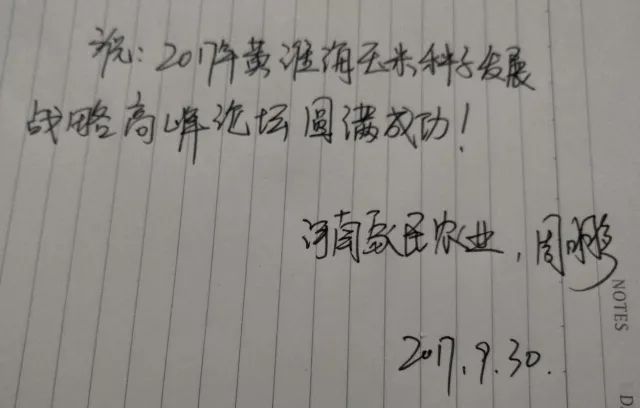 祝：2017年黄淮海玉米种子发展
战略高峰论坛圆满成功！
河南敏民农业，周鹏
2017.9.30.
NOTES
D